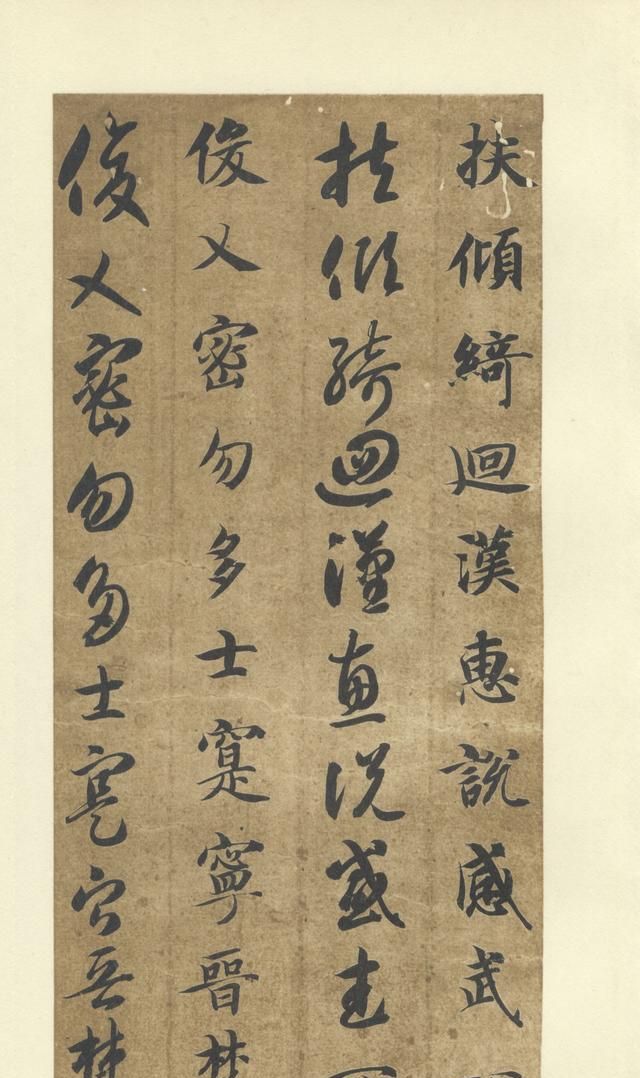 扶傾綺迴漢惠說感武
扶傾綺迴漢惠說感武
俊乂密勿多士寔寧晉楚
俊乂密勿多士寔寧晉楚